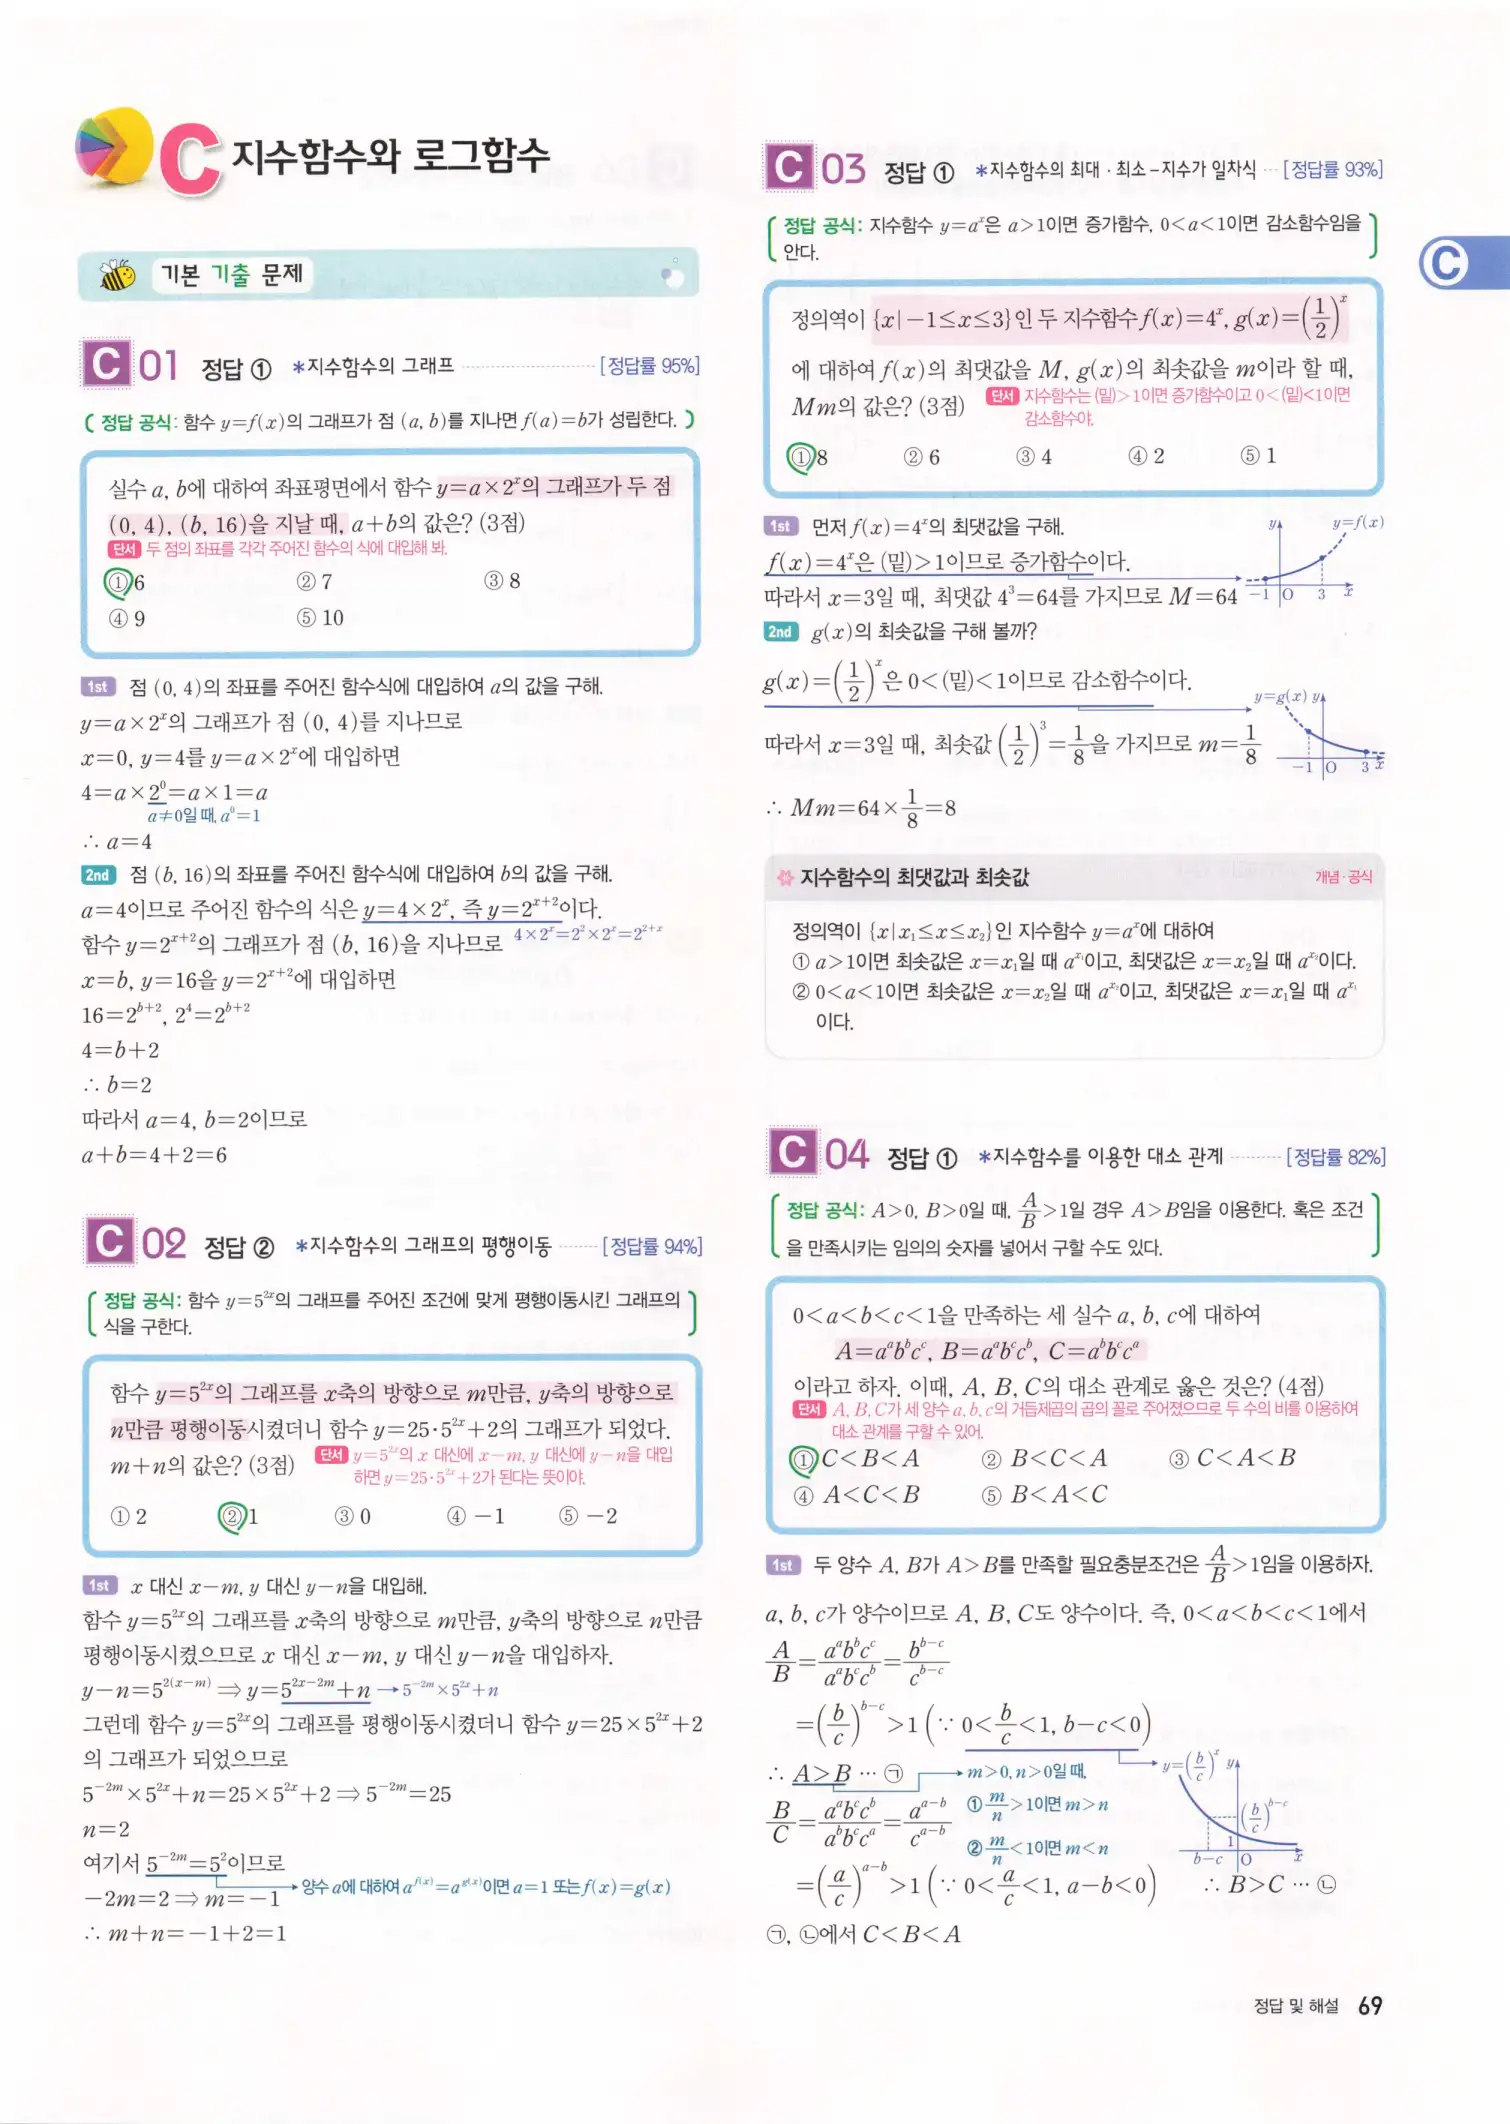 C 지수함수와 로그함수
기본 기출 문제
C 01 정답 ① *지수함수의 그래프 [정답률 95%]
정답 공식: 함수 y=f(x)의 그래프가 점 (a, b)를 지나면 f(a)=b가 성립한다.
실수 a, b에 대하여 좌표평면에서 함수 y=a×2ˣ의 그래프가 두 점
(0, 4), (b, 16)을 지날 때, a+b의 값은? (3점)
단서 두 점의 좌표를 각각 주어진 함수의 식에 대입해 봐.
① 6 ② 7 ③ 8
④ 9 ⑤ 10
1st 점 (0, 4)의 좌표를 주어진 함수식에 대입하여 a의 값을 구해.
y=a×2ˣ의 그래프가 점 (0, 4)를 지나므로
x=0, y=4를 y=a×2ˣ에 대입하면
4=a×2⁰=a×1=a
a≠0일 때, a⁰=1
∴ a=4
2nd 점 (b, 16)의 좌표를 주어진 함수식에 대입하여 b의 값을 구해.
a=4이므로 주어진 함수의 식은 y=4×2ˣ, 즉 y=2ˣ⁺²이다.
함수 y=2ˣ⁺²의 그래프가 점 (b, 16)을 지나므로 4×2ˣ=2²×2ˣ=2²⁺ˣ
x=b, y=16을 y=2ˣ⁺²에 대입하면
16=2ᵇ⁺², 2⁴=2ᵇ⁺²
4=b+2
∴ b=2
따라서 a=4, b=2이므로
a+b=4+2=6
C 02 정답 ② *지수함수의 그래프의 평행이동 [정답률 94%]
정답 공식: 함수 y=5²ˣ의 그래프를 주어진 조건에 맞게 평행이동시킨 그래프의
식을 구한다.
함수 y=5²ˣ의 그래프를 x축의 방향으로 m만큼, y축의 방향으로
n만큼 평행이동시켰더니 함수 y=25·5²ˣ+2의 그래프가 되었다.
m+n의 값은? (3점) 단서 y=5²ˣ의 x 대신에 x-m, y 대신에 y-n을 대입
하면 y=25·5²ˣ+2가 된다는 뜻이야.
① 2 ② 1 ③ 0 ④ -1 ⑤ -2
1st x 대신 x-m, y 대신 y-n을 대입해.
함수 y=5²ˣ의 그래프를 x축의 방향으로 m만큼, y축의 방향으로 n만큼
평행이동시켰으므로 x 대신 x-m, y 대신 y-n을 대입하자.
y-n=5²⁽ˣ⁻ᵐ⁾ ⟹ y=5²ˣ⁻²ᵐ+n → 5⁻²ᵐ×5²ˣ+n
그런데 함수 y=5²ˣ의 그래프를 평행이동시켰더니 함수 y=25×5²ˣ+2
의 그래프가 되었으므로
5⁻²ᵐ×5²ˣ+n=25×5²ˣ+2 ⟹ 5⁻²ᵐ=25
n=2
여기서 5⁻²ᵐ=5²이므로
→ 양수 a에 대하여 a^f(x)=a^g(x)이면 a=1 또는 f(x)=g(x)
-2m=2 ⟹ m=-1
∴ m+n=-1+2=1
C 03 정답 ① *지수함수의 최대·최소-지수가 일차식 [정답률 93%]
정답 공식: 지수함수 y=aˣ은 a>1이면 증가함수, 0<a<1이면 감소함수임을
안다.
정의역이 {x|-1≤x≤3}인 두 지수함수 f(x)=4ˣ, g(x)=(1/2)ˣ
에 대하여 f(x)의 최댓값을 M, g(x)의 최솟값을 m이라 할 때,
Mm의 값은? (3점) 단서 지수함수는 (밑)>1이면 증가함수이고 0<(밑)<1이면
감소함수야.
① 8 ② 6 ③ 4 ④ 2 ⑤ 1
1st 먼저 f(x)=4ˣ의 최댓값을 구해.
f(x)=4ˣ은 (밑)>1이므로 증가함수이다.
따라서 x=3일 때, 최댓값 4³=64를 가지므로 M=64
y y=f(x)
-1 O 3 x
2nd g(x)의 최솟값을 구해 볼까?
g(x)=(1/2)ˣ은 0<(밑)<1이므로 감소함수이다.
y=g(x) y
따라서 x=3일 때, 최솟값 (1/2)³=1/8을 가지므로 m=1/8
-1 O 3 x
∴ Mm=64×1/8=8
지수함수의 최댓값과 최솟값 개념·공식
정의역이 {x|x₁≤x≤x₂}인 지수함수 y=aˣ에 대하여
① a>1이면 최솟값은 x=x₁일 때 a^x₁이고, 최댓값은 x=x₂일 때 a^x₂이다.
② 0<a<1이면 최솟값은 x=x₂일 때 a^x₂이고, 최댓값은 x=x₁일 때 a^x₁
이다.
C 04 정답 ① *지수함수를 이용한 대소 관계 [정답률 82%]
정답 공식: A>0, B>0일 때, A/B>1일 경우 A>B임을 이용한다. 혹은 조건
을 만족시키는 임의의 숫자를 넣어서 구할 수도 있다.
0<a<b<c<1을 만족하는 세 실수 a, b, c에 대하여
A=aᵃbᵇcᶜ, B=aᵃbᶜcᵇ, C=aᵇbᶜcᵃ
이라고 하자. 이때, A, B, C의 대소 관계로 옳은 것은? (4점)
단서 A, B, C가 세 양수 a, b, c의 거듭제곱의 곱의 꼴로 주어졌으므로 두 수의 비를 이용하여
대소 관계를 구할 수 있어.
① C<B<A ② B<C<A ③ C<A<B
④ A<C<B ⑤ B<A<C
1st 두 양수 A, B가 A>B를 만족할 필요충분조건은 A/B>1임을 이용하자.
a, b, c가 양수이므로 A, B, C도 양수이다. 즉, 0<a<b<c<1에서
A/B=aᵃbᵇcᶜ/aᵃbᶜcᵇ=bᵇ⁻ᶜ/cᵇ⁻ᶜ
=(b/c)ᵇ⁻ᶜ>1 (∵ 0<b/c<1, b-c<0)
∴ A>B ⋯ ㉠ → m>0, n>0일 때,
① m/n>1이면 m>n
② m/n<1이면 m<n
y=(b/c)ˣ y
(b/c)ᵇ⁻ᶜ
1
b-c O x
B/C=aᵃbᶜcᵇ/aᵇbᶜcᵃ=aᵃ⁻ᵇ/cᵃ⁻ᵇ
=(a/c)ᵃ⁻ᵇ>1 (∵ 0<a/c<1, a-b<0) ∴ B>C ⋯ ㉡
㉠, ㉡에서 C<B<A
C
정답 및 해설 69